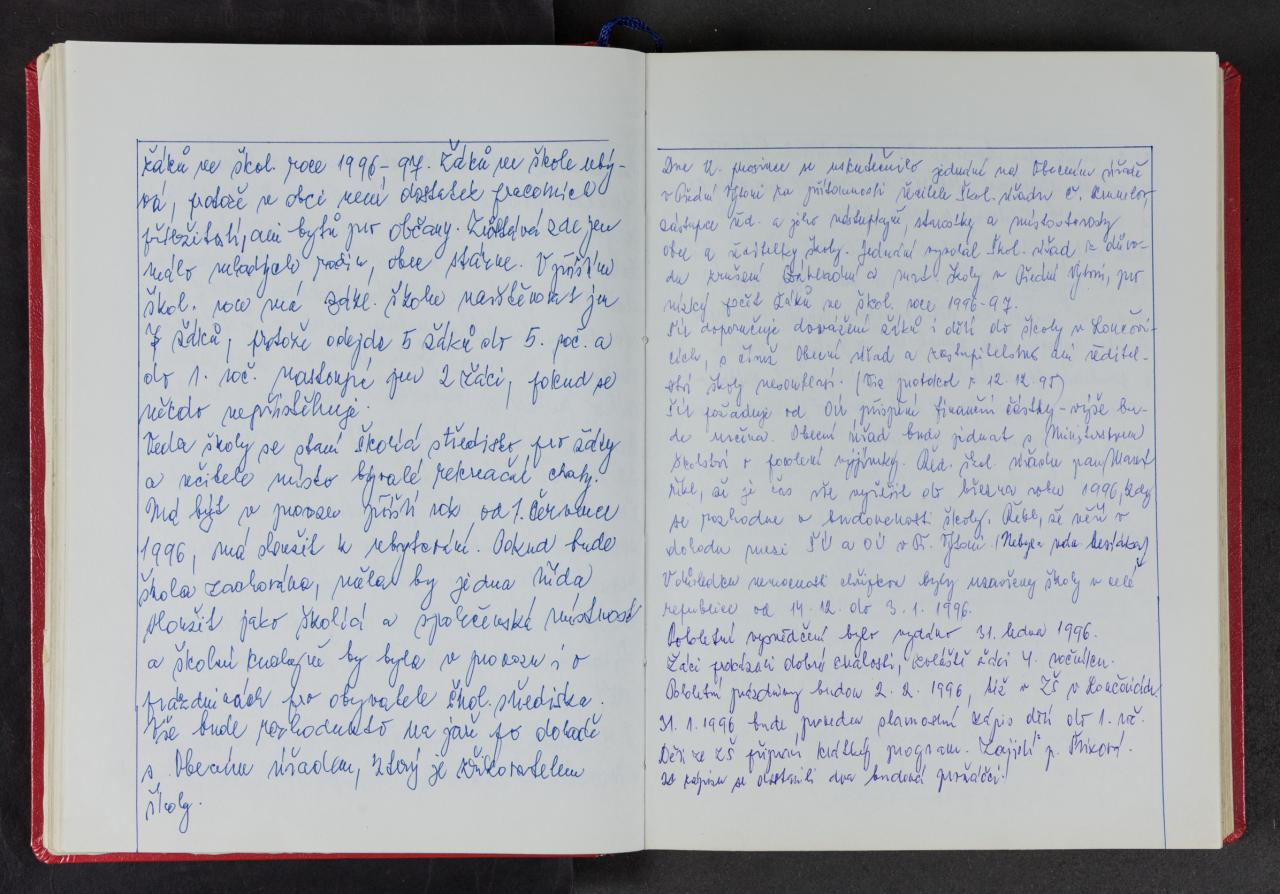 žáků ve škol. roce 1996-97. Žáků ve škole ubý-
vá, protože v obci není dostatek pracovních
příležitostí, ani bytů pro občany. Zůstává zde jen
málo mladých rodin, obec stárne. V příštím
škol. roce má zákl. školu navštěvovat jen
7 žáků, protože odejde 5 žáků do 5. roč. a
do 1. roč. nastoupí jen 2 žáci, pokud se
někdo nepřistěhuje.
Vedle školy se staví školící středisko pro žáky
a učitele místo bývalé rekreační chaty.
Má být v provozu příští rok od 1. července
1996, má sloužit k ubytování. Pokud bude
škola zachována, měla by jedna třída
sloužit jako školící a společenská místnost
a školní kuchyně by byla v provozu i o
prázdninách pro obyvatele škol. střediska.
Vše bude rozhodnuto na jaře po dohodě
s Obecním úřadem, který je zřizovatelem
školy.
Dne 12. prosince se uskutečnilo jednání na Obecním úřadě
v Přední Výtoni za přítomnosti ředitele Škol. úřadu Č. Krumlov,
zástupce řed. a jeho nástupkyně, starostky a místostarosty
obce a ředitelky školy. Jednání vyvolal Škol. úřad z důvo-
du zrušení Základní a mat. školy v Přední Výtoni, pro
nízký počet žáků ve škol. roce 1996-97.
ŠÚ doporučuje dovážení žáků i dětí do školy v Loučovi-
cích, s čímž Obecní úřad a zastupitelstvo ani ředitel-
ství školy nesouhlasí. (Viz protokol z 12. 12. 95)
ŠÚ požaduje od OÚ přispění finanční částky - výše bu-
de určena. Obecní úřad bude jednat s Ministerstvem
školství o povolení výjimky. Řed. škol. úřadu pan
řekl, že je čas vše vyřešit do března roku 1996, kdy
se rozhodne o budoucnosti školy. Řekl, že věří v
dohodu mezi ŠÚ a OÚ v Př. Výtoni. (Nebyla
V důsledku nemocnosti chřipkou byly uzavřeny školy v celé
republice od 14. 12. do 3. 1. 1996.
Pololetní vysvědčení bylo vydáno 31. ledna 1996.
Žáci prokázali dobré znalosti, zvláště žáci 4. ročníku.
Pololetní prázdniny budou 2. 2. 1996, též v ZŠ v Loučovicích.
31. 1. 1996 bude proveden slavnostní zápis dětí do 1. roč.
Děti ze ZŠ připraví krátký program. Zajistí p.
K zápisu se dostavili dva budoucí prvňáčci.